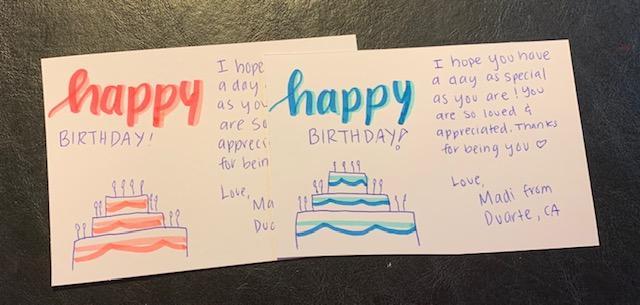 happy
BIRTHDAY!
I hope
a day
as you
are so
appreci
for bein
Love,
Ma
Dua
happy
BIRTHDAY!
I hope you have
a day as special
as you are! You
are so loved &
appreciated. Thanks
for being you ♡
Love,
Madi from
Duarte, CA